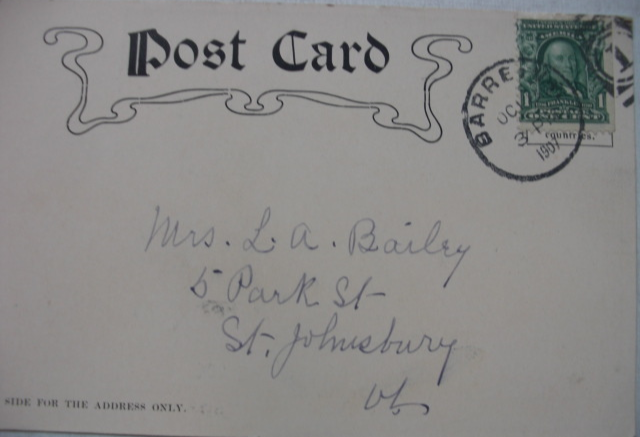 Post Card
UNITED STATES OF
AMERICA
1 1
BARRE
OC
3 P
1907
countries.
Mrs. L. A. Bailey
5 Park St
St. Johnsbury
Vt.
SIDE FOR THE ADDRESS ONLY.